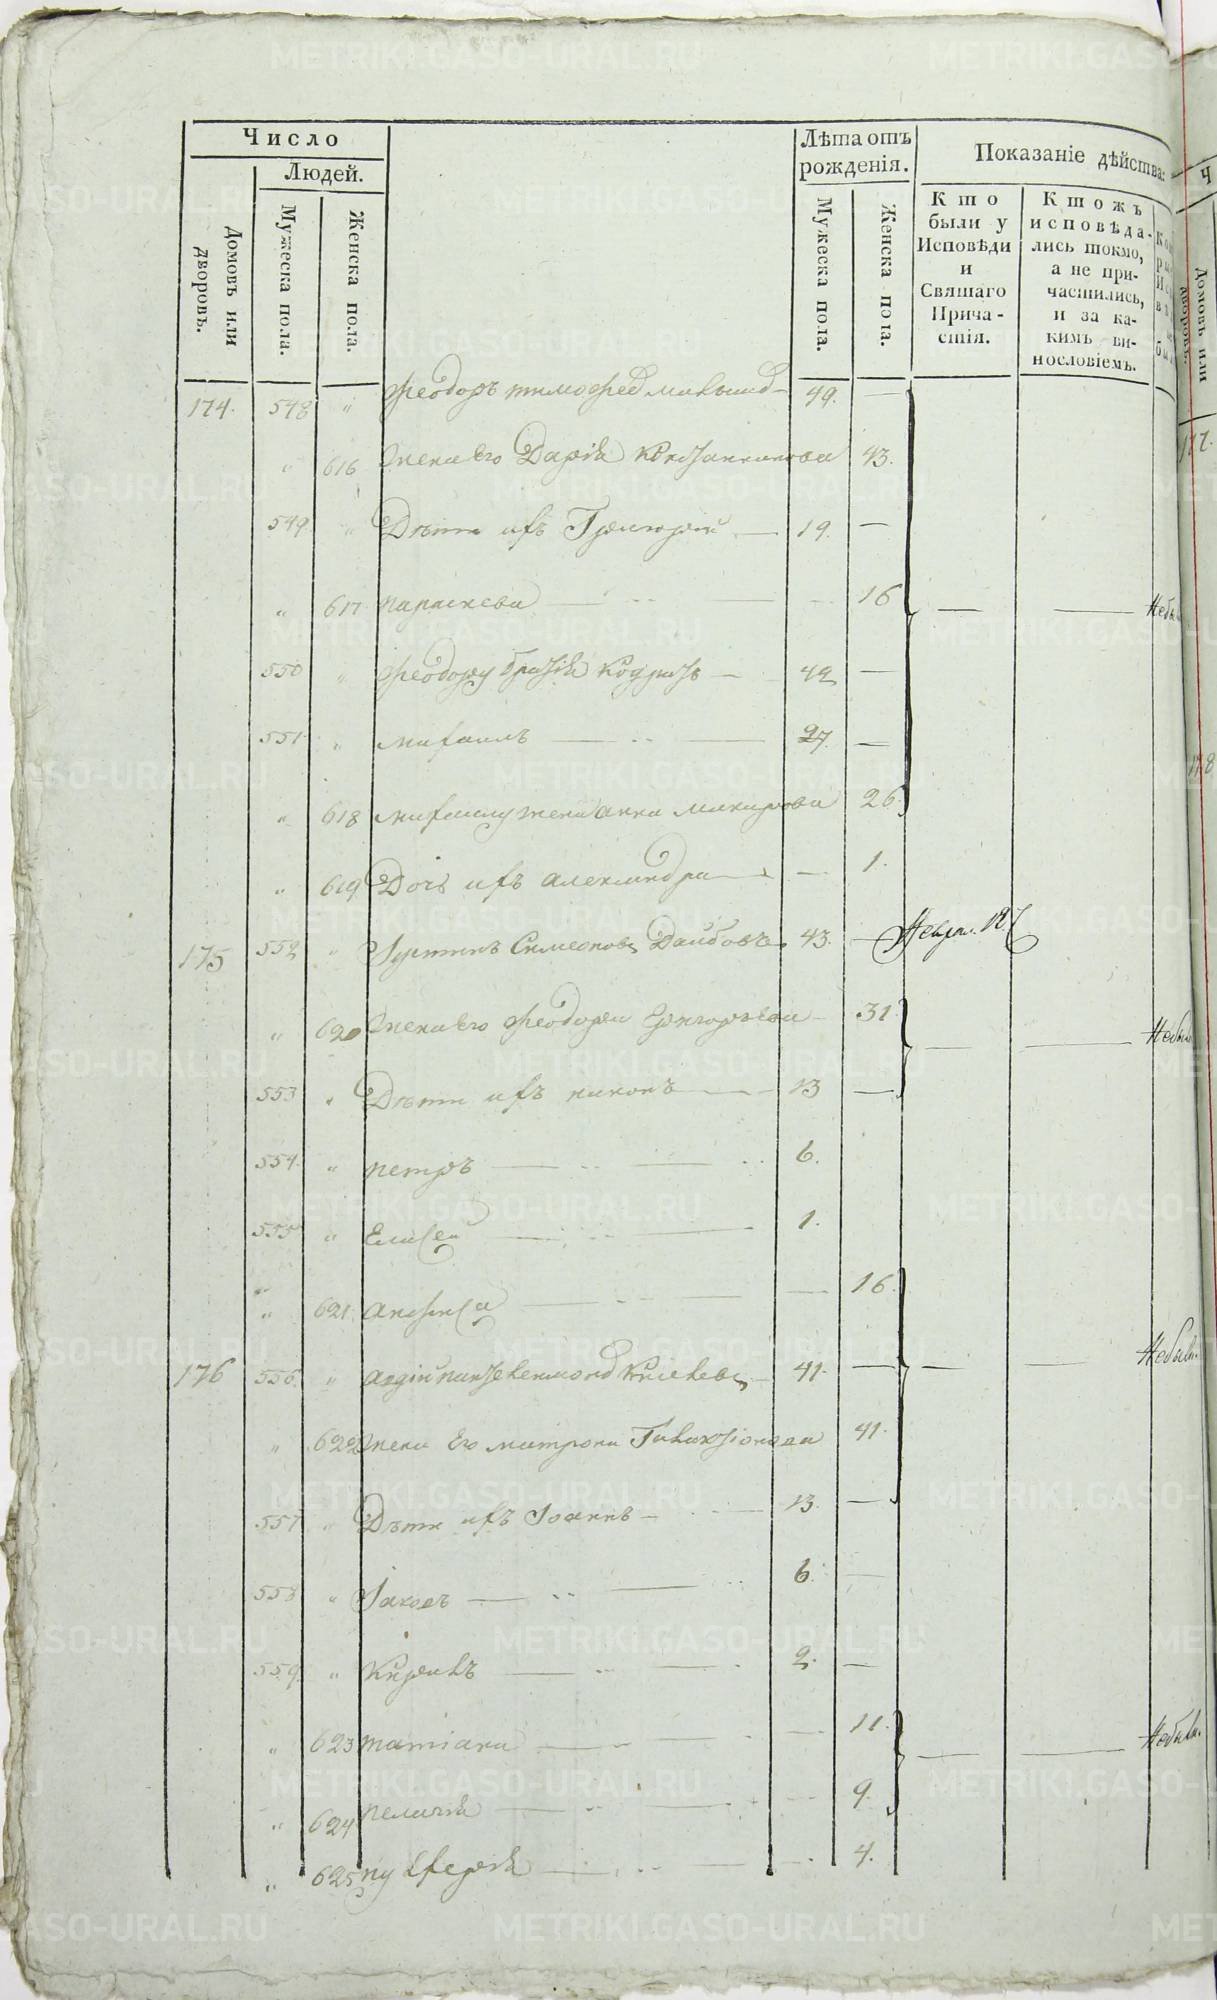 METRIKI.GASO-URAL.RU
Число
Людей.
Домовъ или дворовъ.
Мужеска пола.
Женска пола.
Лѣта отъ рожденія.
Мужеска пола.
Женска пола.
Показаніе дѣйства:
Кто были у Исповѣди и Святаго Прича-стія.
Ктожъ исповѣда-лись токмо, а не при-частились, и за ка-кимъ ви-нословіемъ.
174. 548 " Феодоръ Тимофеев 49. —
" 616 Жена Его Дарія 43.
549 " Дѣти ихъ Григорей — 19. —
" 617 Параскева — 16
Небы
550 " Феодору братія Кодратъ — 42 —
551 " Михаилъ — 27. —
" 618 Михаилу жена Анна Макарова 26.
" 619 Дочь ихъ Александра — 1.
175 552 " Симеоновъ 43. —
" 620 Жена Его Феодора Григорьева — 31
Небыли
553 " Дѣти ихъ Никонъ — 13 —
554 " Петръ — 6.
555 " Елисей — 1.
" 621 Анфиса — 16.
176 556 " 41. —
Небыли.
" 622 Жена Его Матрона 41.
557 " Дѣти ихъ Іоаннъ — 13. —
558 " Іаковъ — 6. —
559 " Кирикъ — 2. —
" 623 Татіана — 11.
Небыли.
" 624 Пелагія — 9.
" 625 4.